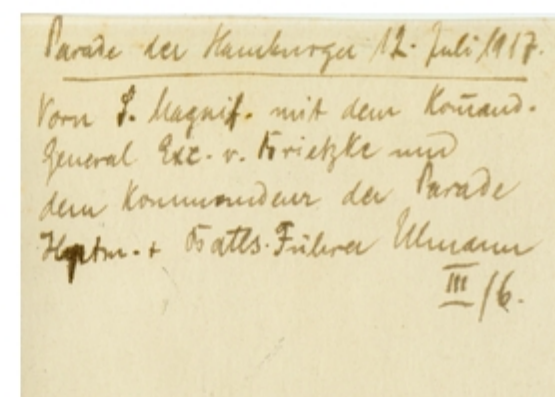 Parade der Hamburger 12. Juli 1917.
Vorn S. Magnif. mit dem Komand.
General Exc. v. Brietzke und
dem Kommandeur der Parade
Hptm. + Batls. Führer Ulmann
III/6.